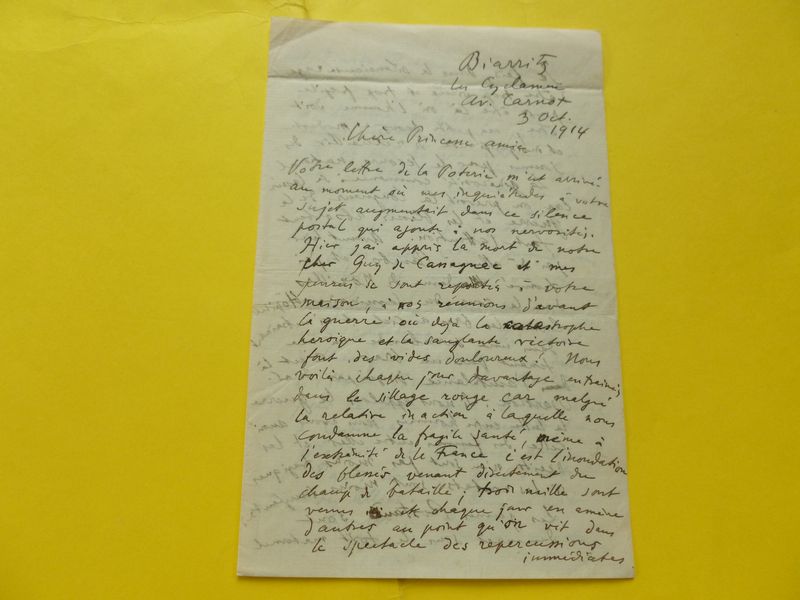 Biarritz
Les Cyclamens
Av. Carnot
3 Oct.
1914
Chère Princesse amie
Votre lettre de la Poterie m'est arrivée
au moment où mes inquiétudes à votre
sujet augmentait dans ce silence
postal qui ajoute à nos nervosités.
Hier j'ai appris la mort de notre
cher Guy de Cassagnac et mes
pensées se sont reportées à votre
maison, à nos réunions d'avant
la guerre où déjà la catastrophe
heroique et la sanglante victoire
font des vides douloureux! Nous
voilà chaque jour davantage entrainés
dans le sillage rouge car malgré
la relative inaction à laquelle nous
condamne la fragile santé, même à
l'extrémité de la France c'est l'inondation
des blessés venant directement du
champ de bataille; trois mille sont
venus et chaque jour en amène
d'autres au point qu'on vit dans
le spectacle des repercussions
immédiates